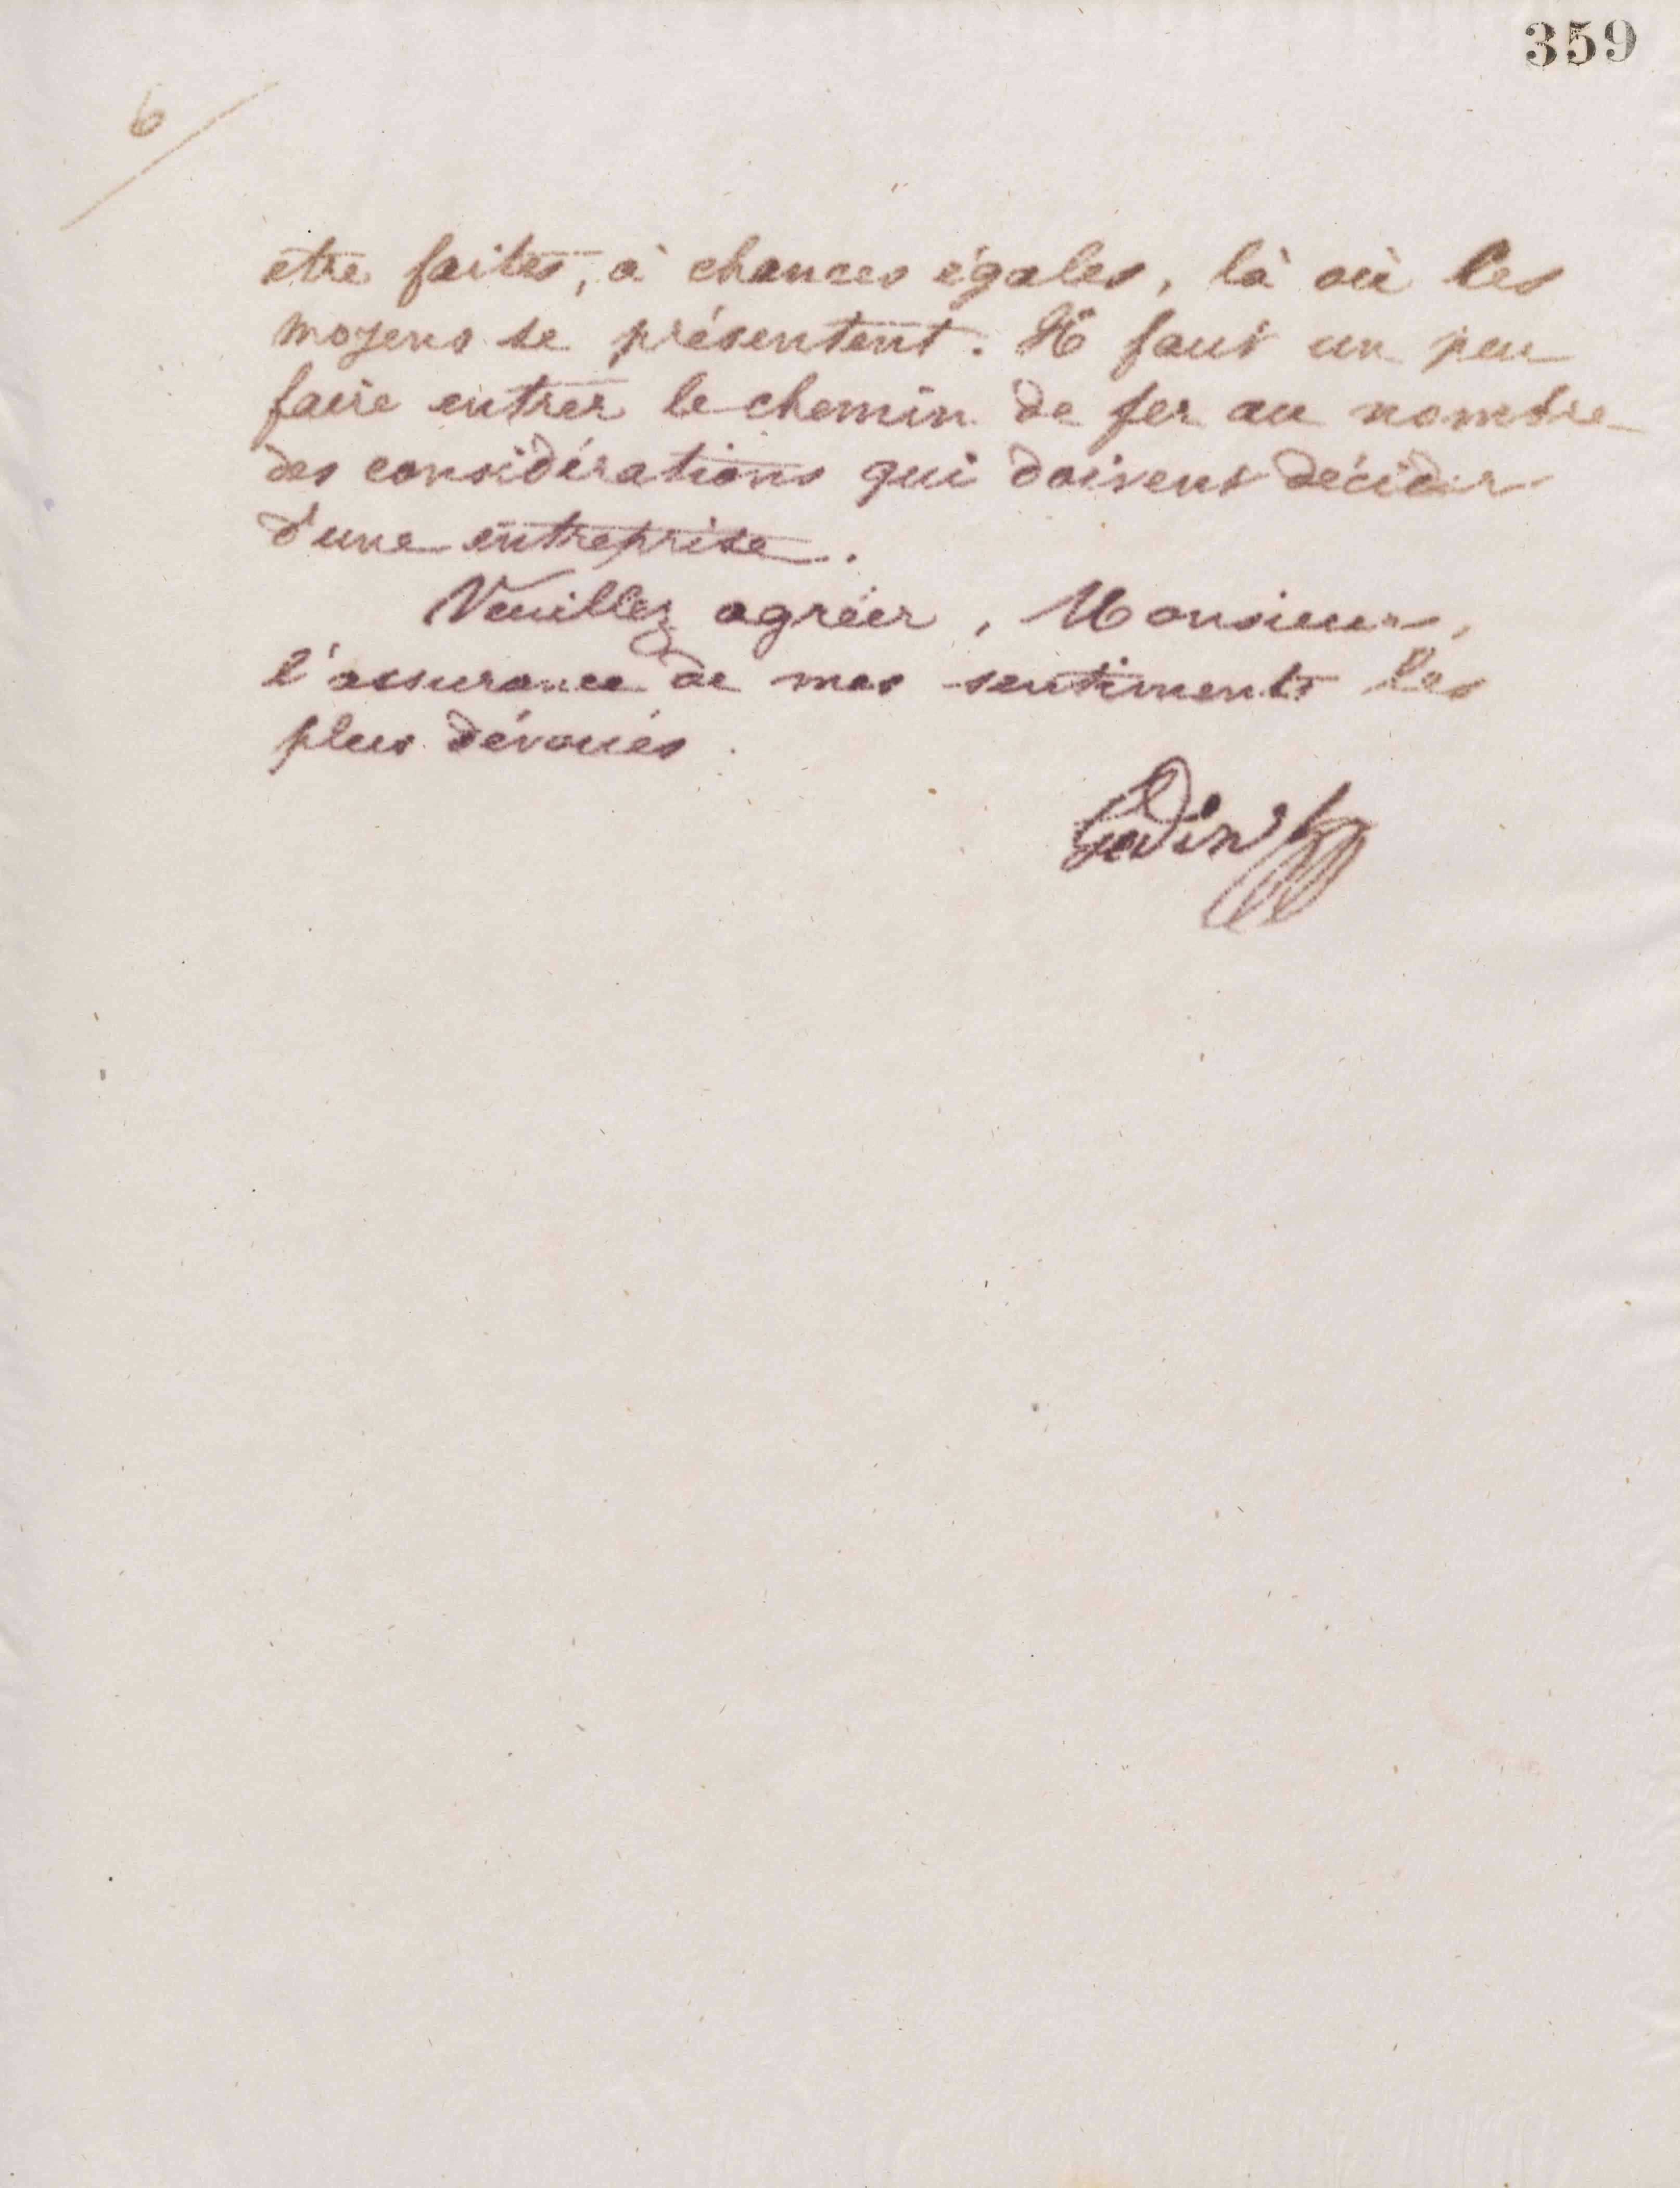 359
6
etre faites, à chances égales, là où les
moyens se présentent. Il faut un peu
faire entrer le chemin de fer au nombre
des considérations qui doivent décider
d'une entreprise.
Veuillez agréer, Monsieur,
l'assurance de mes sentiments les
plus dévoués.
Godin